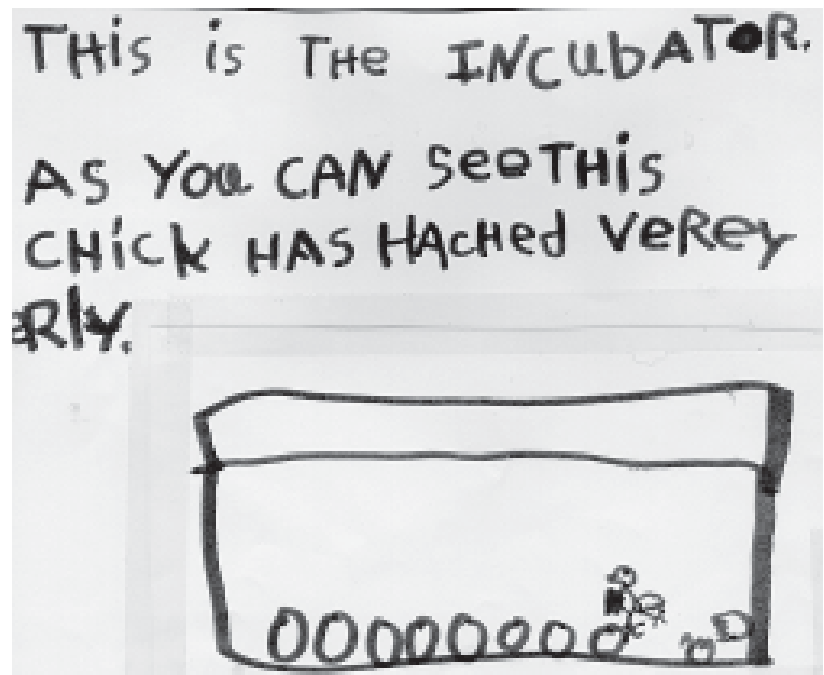 THis is THe INCubATOR.
AS YOu CAN seeTHis
CHick HAS HAcHed VeRey
eRly.